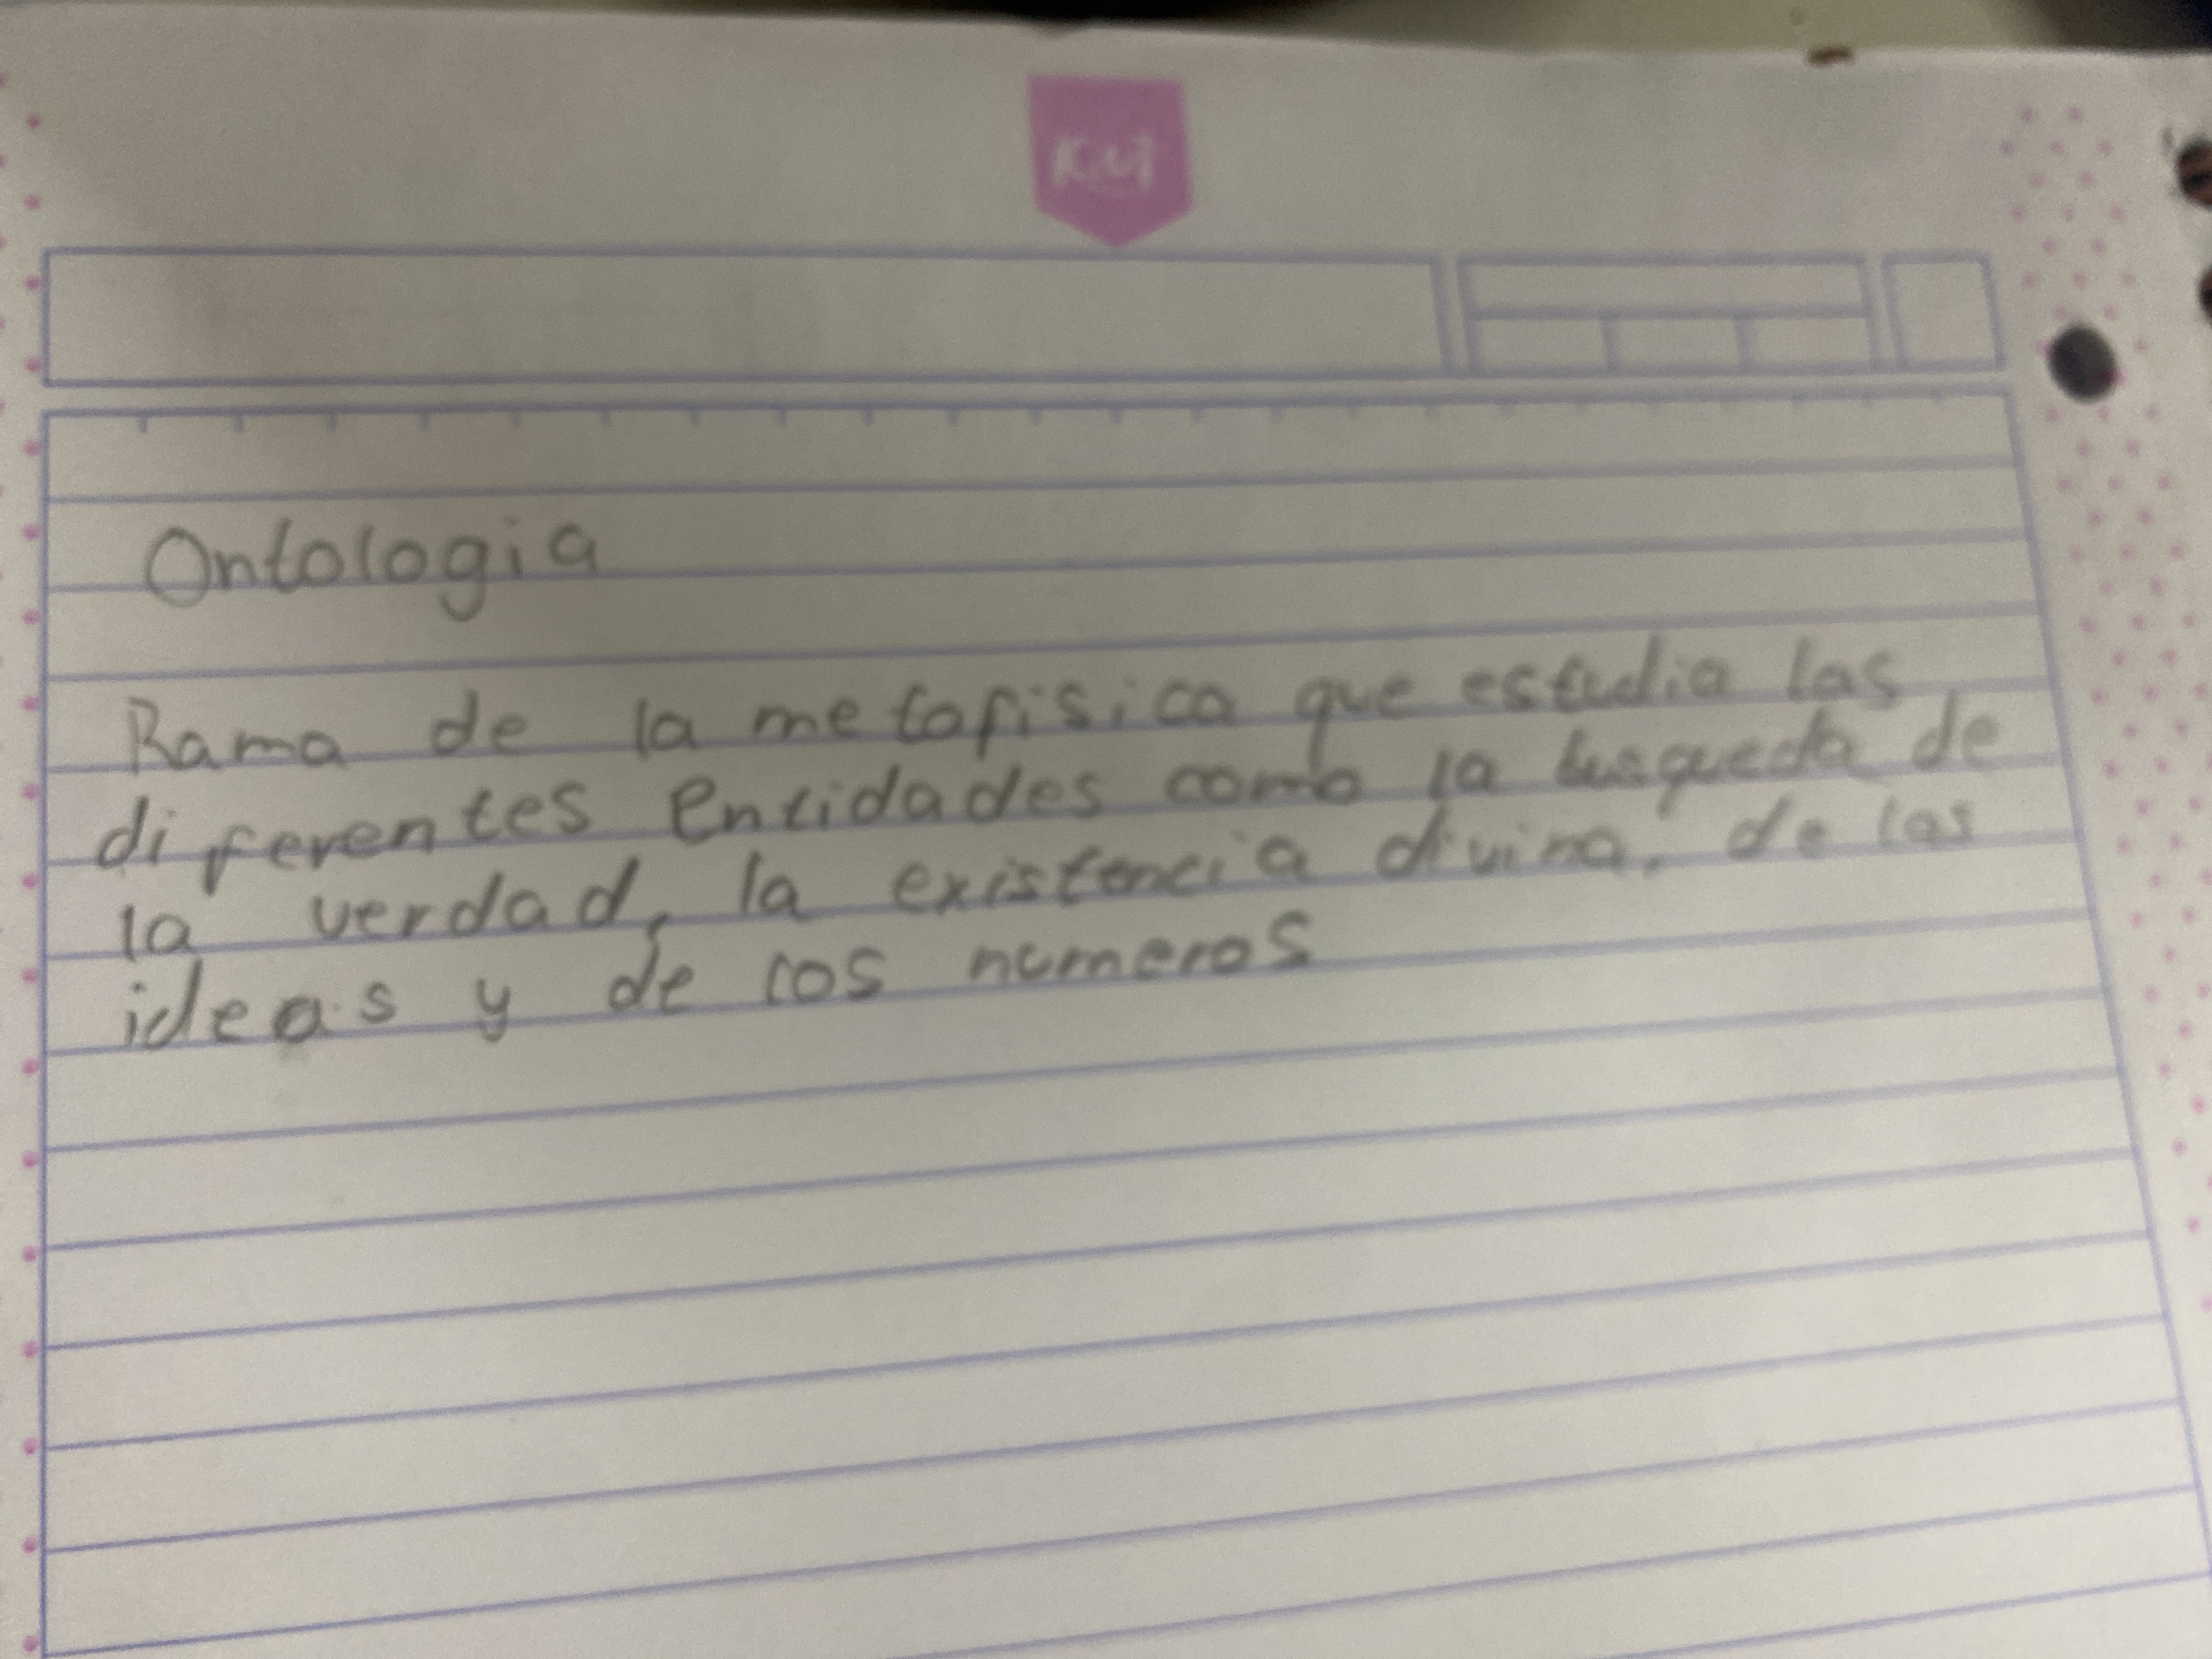 Kiut
Ontologia
Rama de la metafisica que estudia las
diferentes entidades como la busqueda de
la verdad, la existencia divina, de las
ideas y de los numeros